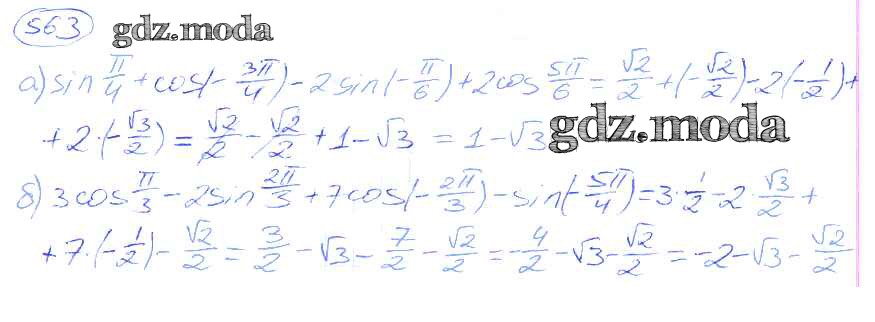 563 gdz.moda
а) sin π/4 + cos(-3π/4) - 2 sin(-π/6) + 2cos 5π/6 = √2/2 + (-√2/2) - 2(-1/2) +
+ 2·(-√3/2) = √2/2 - √2/2 + 1 - √3 = 1 - √3 gdz.moda
б) 3cos π/3 - 2sin 2π/3 + 7cos(-2π/3) - sin(-5π/4) = 3·1/2 - 2·√3/2 +
+ 7·(-1/2) - √2/2 = 3/2 - √3 - 7/2 - √2/2 = -4/2 - √3 - √2/2 = -2 - √3 - √2/2